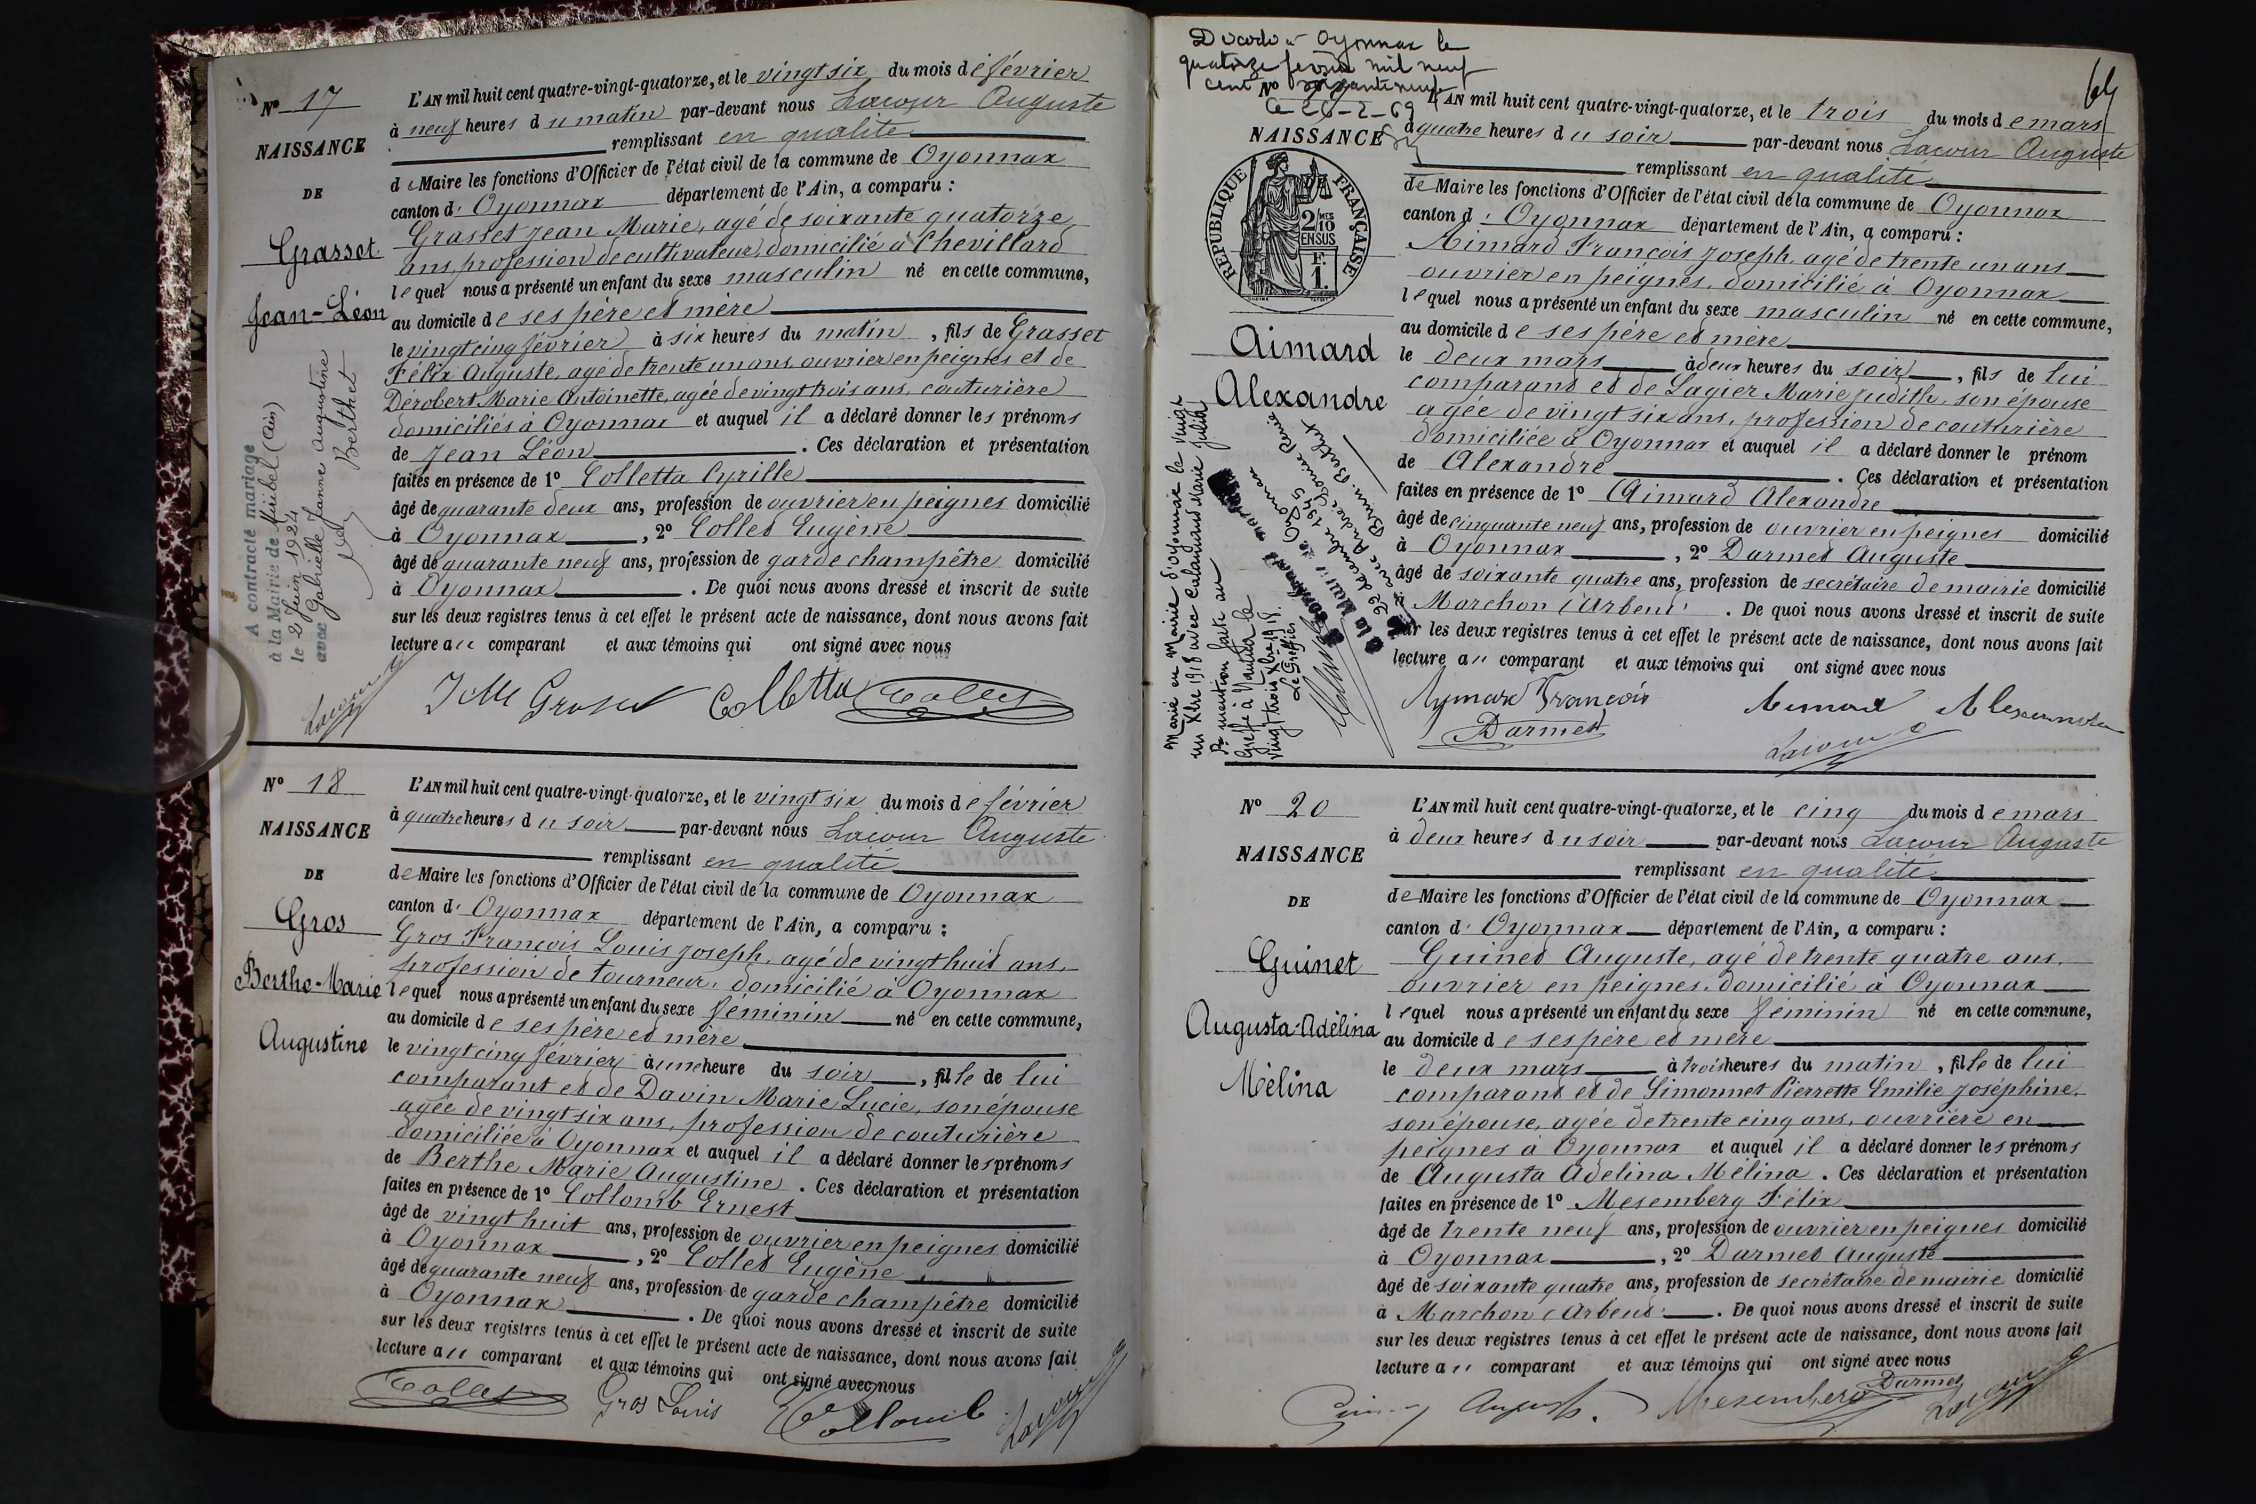 N° 17
NAISSANCE
DE
Grasset
Jean-Léon
A contracté mariage
à la Mairie de Miribel (Ain)
le 2 Juin 1924
avec Gabrielle Jeanne Augustine
Berthet
L'AN mil huit cent quatre-vingt-quatorze, et le vingt six du mois de février
à neuf heures du matin par-devant nous Lacour Auguste
remplissant en qualité
de Maire les fonctions d'Officier de l'état civil de la commune de Oyonnax
canton d' Oyonnax département de l'Ain, a comparu :
Grasset Jean Marie, agé de soixante quatorze
ans, profession de cultivateur, domicilié à Chevillard
lequel nous a présenté un enfant du sexe masculin né en cette commune,
au domicile de ses père et mère
le vingt cinq février à six heures du matin, fils de Grasset
Félix Auguste, agé de trente un ans, ouvrier en peignes et de
Dérobert Marie Antoinette, agée de vingt trois ans, couturière
domiciliés à Oyonnax et auquel il a déclaré donner les prénoms
de Jean Léon . Ces déclaration et présentation
faites en présence de 1° Colletta Cyrille
âgé de quarante deux ans, profession de ouvrier en peignes domicilié
à Oyonnax , 2° Collet Eugène
âgé de quarante neuf ans, profession de garde champêtre domicilié
à Oyonnax . De quoi nous avons dressé et inscrit de suite
sur les deux registres tenus à cet effet le présent acte de naissance, dont nous avons fait
lecture au comparant et aux témoins qui ont signé avec nous
Lacour
Colletta Collet
N° 18
NAISSANCE
DE
Gros
Berthe-Marie
Augustine
L'AN mil huit cent quatre-vingt-quatorze, et le vingt six du mois de février
à quatre heures du soir par-devant nous Lacour Auguste
remplissant en qualité
de Maire les fonctions d'Officier de l'état civil de la commune de Oyonnax
canton d' Oyonnax département de l'Ain, a comparu :
Gros François Louis Joseph, agé de vingt huit ans,
profession de tourneur, domicilié à Oyonnax
lequel nous a présenté un enfant du sexe féminin né en cette commune,
au domicile de ses père et mère
le vingt cinq février à une heure du soir , fille de lui
comparant et de Davin Marie Lucie, son épouse
agée de vingt six ans, profession de couturière
domiciliée à Oyonnax et auquel il a déclaré donner les prénoms
de Berthe Marie Augustine . Ces déclaration et présentation
faites en présence de 1° Collomb Ernest
âgé de vingt huit ans, profession de ouvrier en peignes domicilié
à Oyonnax , 2° Collet Eugène
âgé de quarante neuf ans, profession de garde champêtre domicilié
à Oyonnax . De quoi nous avons dressé et inscrit de suite
sur les deux registres tenus à cet effet le présent acte de naissance, dont nous avons fait
lecture au comparant et aux témoins qui ont signé avec nous
Collet Gros Louis Collomb Lacour
Décédé à Oyonnax le
quatorze février mil neuf
cent soixante neuf
Le 26-2-69
N°
NAISSANCE
RÉPUBLIQUE FRANÇAISE
2/10 MES
EN SUS
F.
1.
Aimard
Alexandre
Marié en Mairie d'Oyonnax le vingt
un Xbre 1918 avec Calamand Marie Julia
Pr mention faite au
Greffe à Nantua le
vingt trois Xbre 1918.
Le Greffier
L'AN mil huit cent quatre-vingt-quatorze, et le trois du mois de mars
à quatre heures du soir par-devant nous Lacour Auguste
remplissant en qualité
de Maire les fonctions d'Officier de l'état civil de la commune de Oyonnax
canton d' Oyonnax département de l'Ain, a comparu :
Aimard François Joseph, agé de trente un ans
ouvrier en peignes, domicilié à Oyonnax
lequel nous a présenté un enfant du sexe masculin né en cette commune,
au domicile de ses père et mère
le deux mars à deux heures du soir , fils de lui
comparant et de Lagier Marie Judith, son épouse
agée de vingt six ans, profession de couturière
domiciliée à Oyonnax et auquel il a déclaré donner le prénom
de Alexandre . Ces déclaration et présentation
faites en présence de 1° Aimard Alexandre
âgé de cinquante neuf ans, profession de ouvrier en peignes domicilié
à Oyonnax , 2° Darmet Auguste
âgé de soixante quatre ans, profession de secrétaire de mairie domicilié
à Marchon (Arbent) . De quoi nous avons dressé et inscrit de suite
sur les deux registres tenus à cet effet le présent acte de naissance, dont nous avons fait
lecture au comparant et aux témoins qui ont signé avec nous
Aymard François Aimard Alexandre
Darmet Lacour
N° 20
NAISSANCE
DE
Guinet
Augusta-Adélina
Mélina
L'AN mil huit cent quatre-vingt-quatorze, et le cinq du mois de mars
à deux heures du soir par-devant nous Lacour Auguste
remplissant en qualité
de Maire les fonctions d'Officier de l'état civil de la commune de Oyonnax
canton d' Oyonnax département de l'Ain, a comparu :
Guinet Auguste, agé de trente quatre ans,
ouvrier en peignes, domicilié à Oyonnax
lequel nous a présenté un enfant du sexe féminin né en cette commune,
au domicile de ses père et mère
le deux mars à trois heures du matin , fille de lui
comparant et de Simonnet Pierrette Emilie Joséphine,
son épouse, agée de trente cinq ans, ouvrière en
peignes à Oyonnax et auquel il a déclaré donner les prénoms
de Augusta Adelina Mélina . Ces déclaration et présentation
faites en présence de 1° Mesemberg Félix
âgé de trente neuf ans, profession de ouvrier en peignes domicilié
à Oyonnax , 2° Darmet Auguste
âgé de soixante quatre ans, profession de secrétaire de mairie domicilié
à Marchon (Arbent) . De quoi nous avons dressé et inscrit de suite
sur les deux registres tenus à cet effet le présent acte de naissance, dont nous avons fait
lecture au comparant et aux témoins qui ont signé avec nous
Mesemberg Darmet Lacour